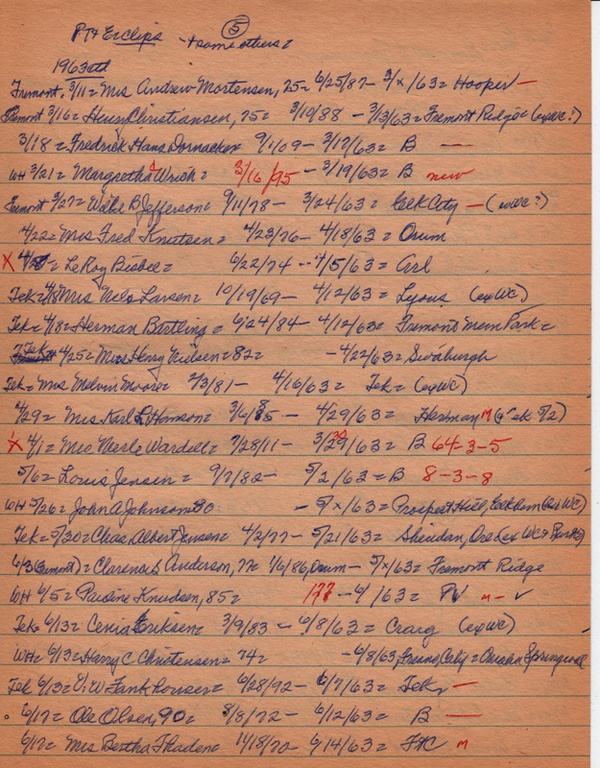 5
PT & E clips + some others =
1963 ctd
Fremont. 3/11 = Mrs Andrew Mortensen, 75 = 6/25/87 - 3/x/63 = Hooper —
Fremont 3/16 = Henry Christiansen, 75 = 3/10/88 - 3/13/63 = Fremont Ridge = (exWC?)
3/18 = Fredrick Hans Dornacker 9/1/09 - 3/17/63 = B —
WH 3/21 = Margretha C Wrich = 3/16/95 - 3/19/63 = B new
Fremont 3/27 = B Jefferson = 9/11/78 - 3/24/63 = Elk City — (exWC?)
4/22 = Mrs Fred Knutsen = 4/23/76 - 4/18/63 = Orum
x = LeRoy Bisbee = 6/22/74 - 4/5/63 = Arl
Tek = 4/18 Mrs Nels Larsen = 10/19/69 - 4/12/63 = Lyons (exWC)
Tek = 4/18 = Herman Bartling = 6/24/84 - 4/12/63 = Fremont Mem Park =
4/25 = Mrs Henry Nielsen = 82 = - 4/22/63 = Swaburgh
Tek = Mrs Melvin Moore = 2/3/81 - 4/16/63 = Tek = (exWC)
4/29 = Mrs Karl L Hanson = 3/6/85 - 4/29/63 = Herman M (Tek 5/2)
x 4/1 = Mrs Merle Wardell = 7/28/11 - 3/29/63 = B 64-3-5
5/6 = Louis Jensen = 9/7/82 - 5/2/63 = B 8-3-8
WH 5/26 = John A Johnson 90 - 5/x/63 = Prospect Hill, Elkhorn (exWC)
Tek = 5/30 = Chas. Albert Jensen = 4/2/77 - 5/21/63 = Sheridan, Ore (exWC +
6/3 (Fremont) = Clarence S Anderson, 77 = 1/6/86, Orum - 5/x/63 = Fremont Ridge
WH 6/5 = Knudsen, 85 = 177 - 6/ /63 = m - ✓
Tek = 6/13 = Cenia Eriksen = 3/9/83 - 6/8/63 = Craig (exWC)
WH = 6/13 = Harry C Christensen = 74 = - 6/8/63 City = Omaha Springwell
Tek 6/13 = V. W Fankhouser = 6/28/92 - 6/7/63 = Tek —
6/17 = Ole Olsen, 90 = 8/8/72 - 6/12/63 = B —
6/17 = Mrs Bertha Thaden = 11/18/70 - 6/14/63 = FtC M